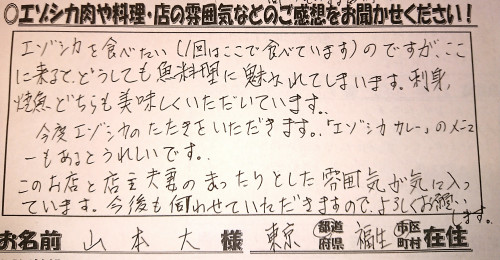 ○エゾシカ肉や料理・店の雰囲気などのご感想をお聞かせください！
エゾシカを食べたい(1回はここで食べています)のですが、ここ
に来るて、どうしても魚料理に魅かれてしまいます。刺身、
焼魚どちらも美味しくいただいています。
今度エゾシカのたたきをいただきます。「エゾシカカレー」のメニュ
ーもあるとうれしいです。
このお店と店主夫妻のまったりとした雰囲気が気に入っ
ています。今後も伺わせていただきますので、よろしくお願い
します。
お名前 山本大 様 東京 都道府県 福生 市区町村 在住